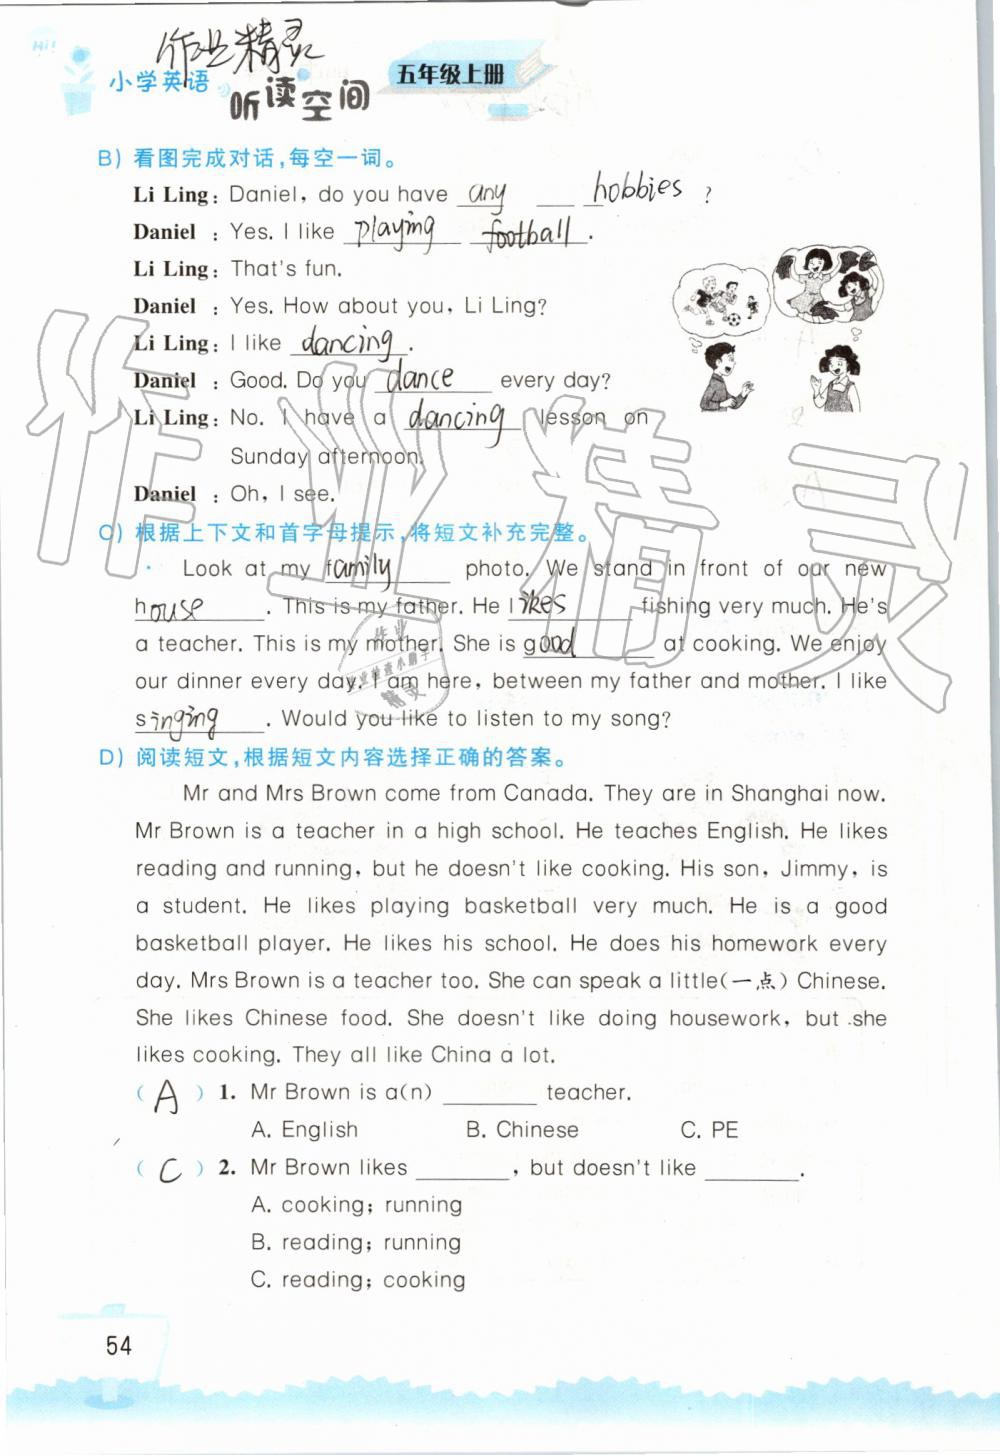 Hi!
作业精灵
小学英语 听读空间 五年级上册
B) 看图完成对话,每空一词。
Li Ling: Daniel, do you have any hobbies ?
Daniel : Yes. I like playing football.
Li Ling: That's fun.
Daniel : Yes. How about you, Li Ling?
Li Ling: I like dancing.
Daniel : Good. Do you dance every day?
Li Ling: No. I have a dancing lesson on
Sunday afternoon.
Daniel : Oh, I see.
C) 根据上下文和首字母提示,将短文补充完整。
Look at my family photo. We stand in front of our new
house. This is my father. He likes fishing very much. He's
a teacher. This is my mother. She is good at cooking. We enjoy
our dinner every day. I am here, between my father and mother. I like
singing. Would you like to listen to my song?
D) 阅读短文,根据短文内容选择正确的答案。
Mr and Mrs Brown come from Canada. They are in Shanghai now.
Mr Brown is a teacher in a high school. He teaches English. He likes
reading and running, but he doesn't like cooking. His son, Jimmy, is
a student. He likes playing basketball very much. He is a good
basketball player. He likes his school. He does his homework every
day. Mrs Brown is a teacher too. She can speak a little(一点) Chinese.
She likes Chinese food. She doesn't like doing housework, but she
likes cooking. They all like China a lot.
( A ) 1. Mr Brown is a(n) ________ teacher.
A. English B. Chinese C. PE
( C ) 2. Mr Brown likes ________, but doesn't like ________.
A. cooking; running
B. reading; running
C. reading; cooking
54
作业精灵